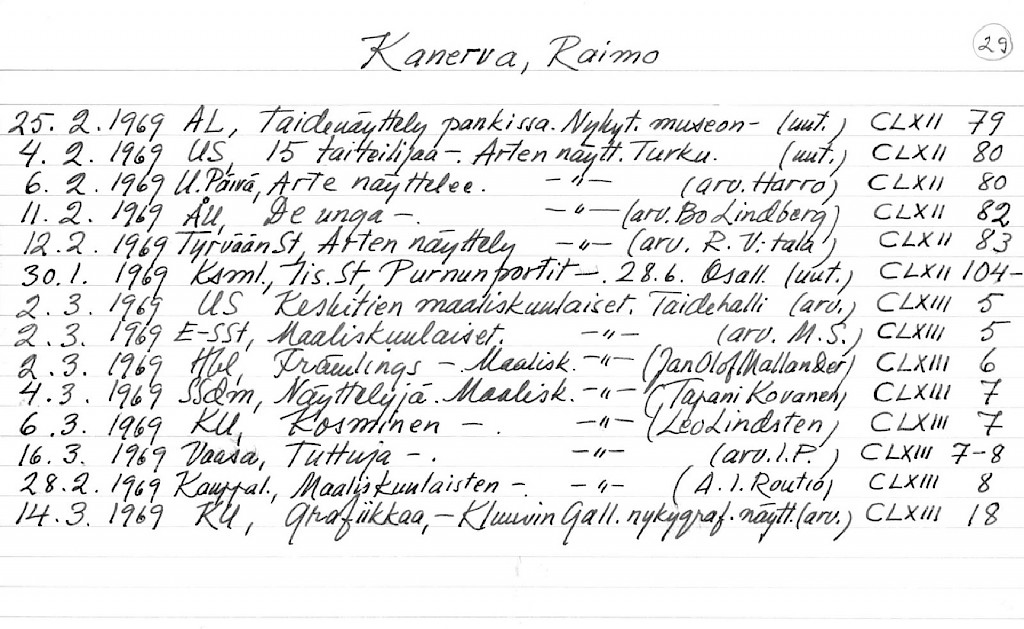 Kanerva, Raimo
29
25. 2. 1969 AL, Taidenäyttely pankissa. Nykyt. museon- (uut.) CLXII 79
4. 2. 1969 US, 15 taiteilijaa -. Arten näytt. Turku. (uut.) CLXII 80
6. 2. 1969 U. Päivä, Arte näyttelee. -"- (arv. Harro) CLXII 80
11. 2. 1969 ÅU, De unga -. -"- (arv. Bo Lindberg) CLXII 82
12.2. 1969 Tyrvään St, Arten näyttely -"- (arv. R. V:tala) CLXII 83
30.1. 1969 Ksml., Iis. St, Purnun portit -. 28.6. Osall. (uut.) CLXII 104-
2.3. 1969 US Keskitien maaliskuulaiset. Taidehalli (arv.) CLXIII 5
2.3. 1969 E-SSt, Maaliskuulaiset. -"- (arv. M.S.) CLXIII 5
2.3. 1969 Hbl, Främlings - Maalisk. -"- (Jan Olof Mallander) CLXIII 6
4.3. 1969 SSdm, Näyttelyjä. Maalisk. -"- (Tapani Kovanen) CLXIII 7
6.3. 1969 KU, Kosminen -. -"- (Leo Lindsten) CLXIII 7
16.3. 1969 Vaasa, Tuttuja -. -"- (arv. I.P.) CLXIII 7-8
28.2. 1969 Kauppal., Maaliskuulaisten -. -"- (A.I. Routio) CLXIII 8
14.3. 1969 KU, Grafiikkaa, - Kluuvin Gall. nykygraf. näytt. (arv.) CLXIII 18